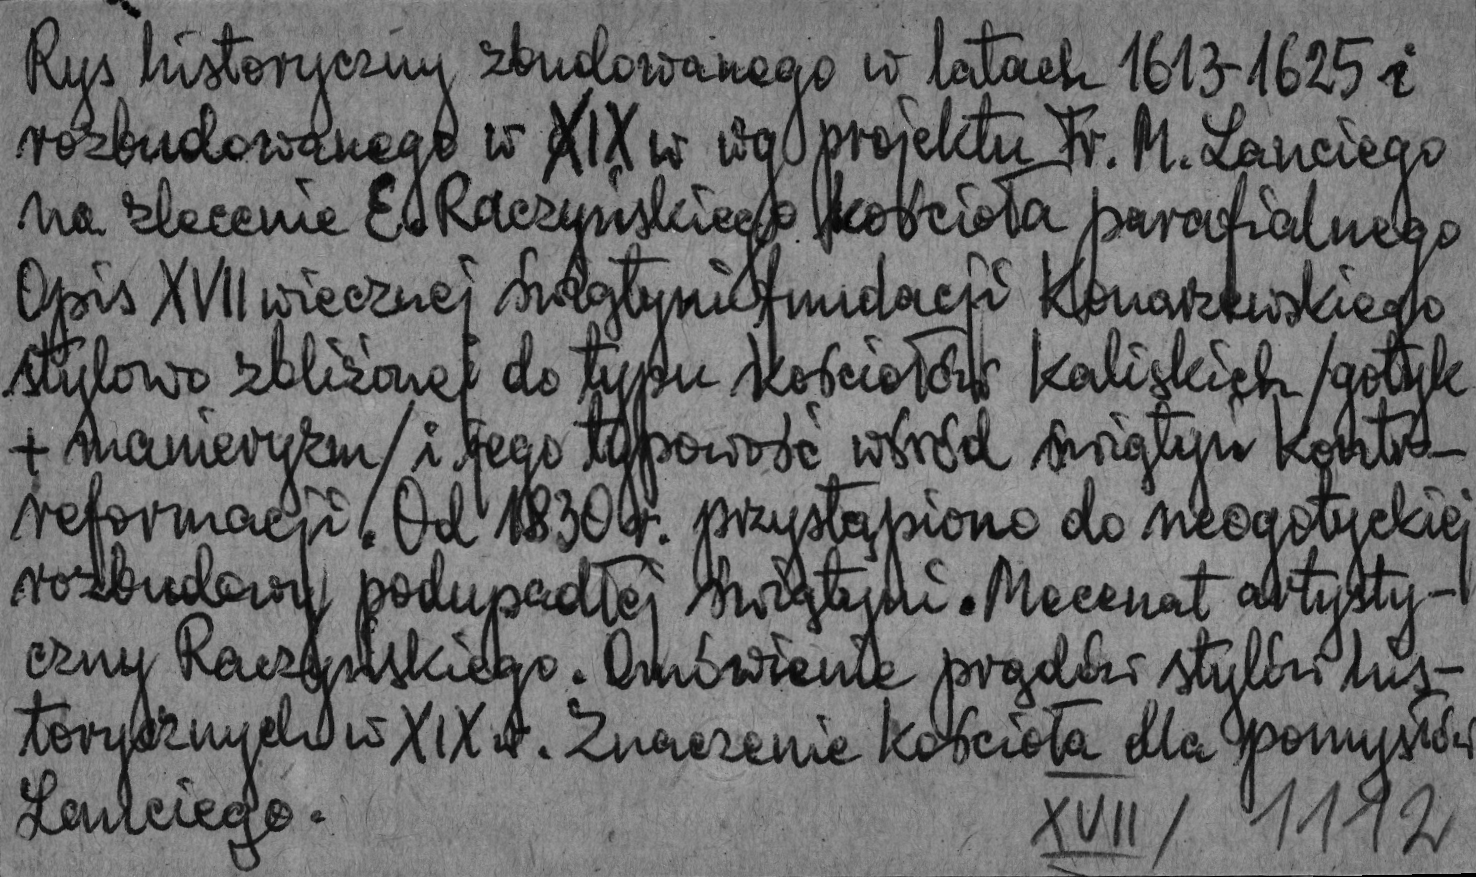 Rys historyczny zbudowanego w latach 1613-1625 i
rozbudowanego w XIX w wg projektu Fr. M. Lanciego
na zlecenie E. Raczyńskiego kościoła parafialnego
Opis XVII wiecznej świątyni fundacji Konarzewskiego
stylowo zbliżonej do typu kościołów kaliskich /gotyk
+ manieryzm/ i jego typowość wśród świątyń kontr-
reformacji. Od 1830 r. przystąpiono do neogotyckiej
rozbudowy podupadłej świątyni. Mecenat artysty-
czny Raczyńskiego. Omówienie prądów stylów his-
torycznych w XIX w. Znaczenie kościoła dla pomysłów
Lanciego.
XVII / 1112